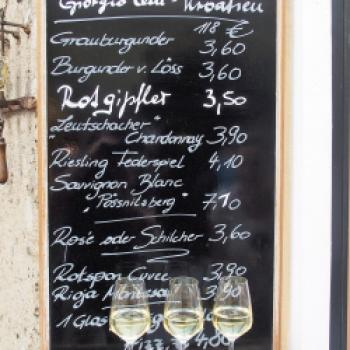 Giorgio Clai - Kroatien
1/8 €
Grauburgunder 3,60
Burgunder v. Löss 3,60
Rotgipfler 3,50
"Leutschacher"
Chardonnay 3,90
Riesling Federspiel 4,10
Sauvignon Blanc
"Pössnitzberg" 7,10
Rosé oder Schilcher 3,60
Rotspon Cuvee 3,90
Rioja 3,90
1 Glas
4,00